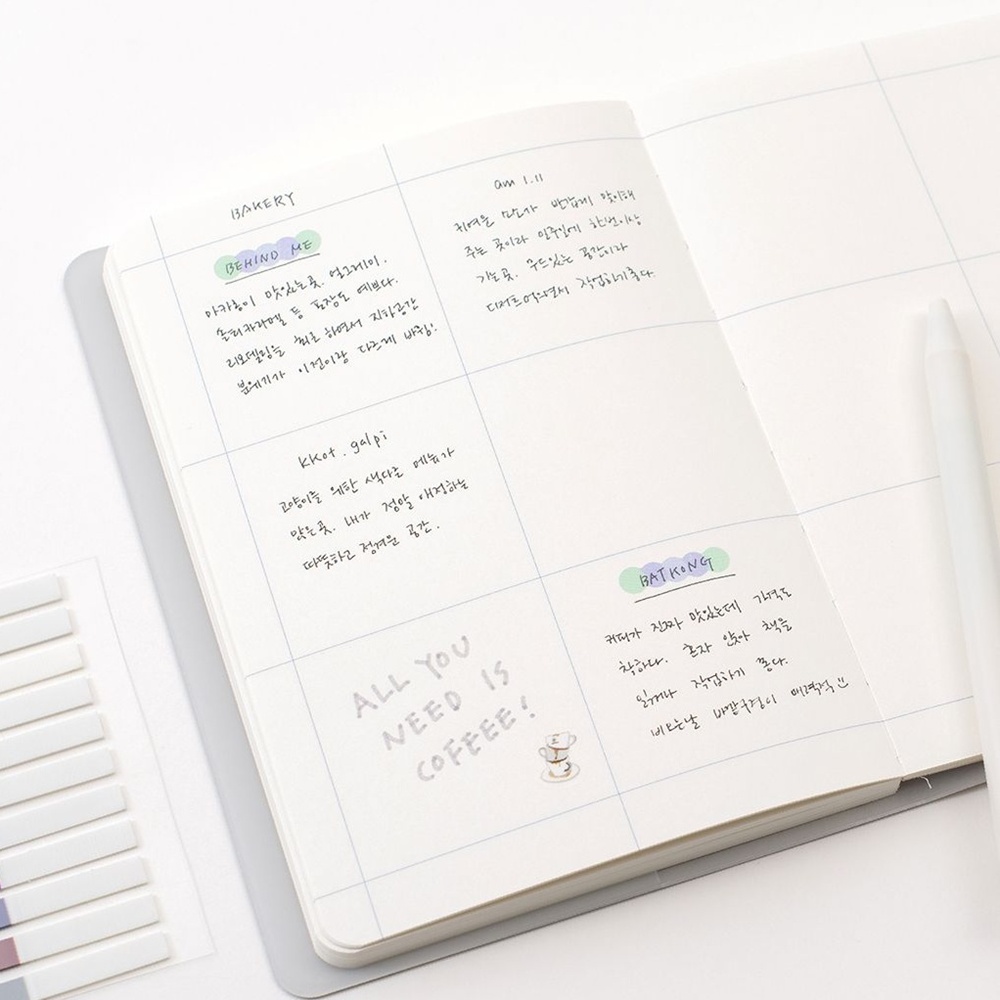 BAKERY
BEHIND ME
마카롱이 맛있는곳. 얼그레이,
솔티카라멜 등 포장도 예쁘다.
리모델링을 최근 하면서 지하공간
분위기가 이전이랑 다르게 바뀜!
am 1.11
귀여운 만두가 반갑게 맞이해
주는 곳이라 일주일에 한번이상
가는곳. 무드있는 공간이라
디저트 먹으면서 작업하기 좋다.
kkot.galpi
고양이를 위한 색다른 메뉴가
많은곳. 내가 정말 애정하는
따뜻하고 정겨운 공간.
ALL YOU
NEED IS
COFFEE!
BATKONG
커피가 진짜 맛있는데 가격도
착하다. 혼자 앉아 책을
읽거나 작업하기 좋다.
비오는날 바깥구경이 매력적